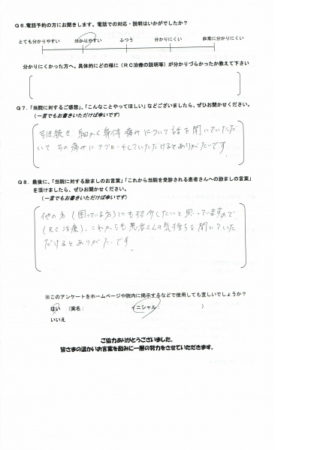 Q6.電話予約の方にお聞きします。電話での対応・説明はいかがでしたか？
とても分かりやすい　分かりやすい　ふつう　分かりにくい　非常に分かりにくい
分かりにくかった方へ、具体的にどの様に（RC治療の説明等）が分かりづらかったか教えて下さい
Q7.「当院に対するご感想」、「こんなことやってほしい」などございましたら、ぜひお聞かせください。
（一言でもお書きいただけば幸いです）
細かく 痛みについて話を聞いていただ
いて その痛みにアプローチしていただけるとありがたいです。
Q8.最後に、「当院に対する励ましのお言葉」「これから当院を受診される患者さんへの励ましの言葉」
を頂けましたら、ぜひお聞かせください。
（一言でもお書きいただけば幸いです）
他の方（困っている方）にも紹介したいと思っていますので
（RC治療）、これからも患者さんの気持ちを聞いていた
だけるとありがたいです。
※このアンケートをホームページや院内に掲示するなどで使用しても宜しいでしょうか？
はい　（実名　イニシャル　）
いいえ
ご協力ありがとうございました。
皆さまの温かいお言葉を励みに一層の努力をさせていただきます。